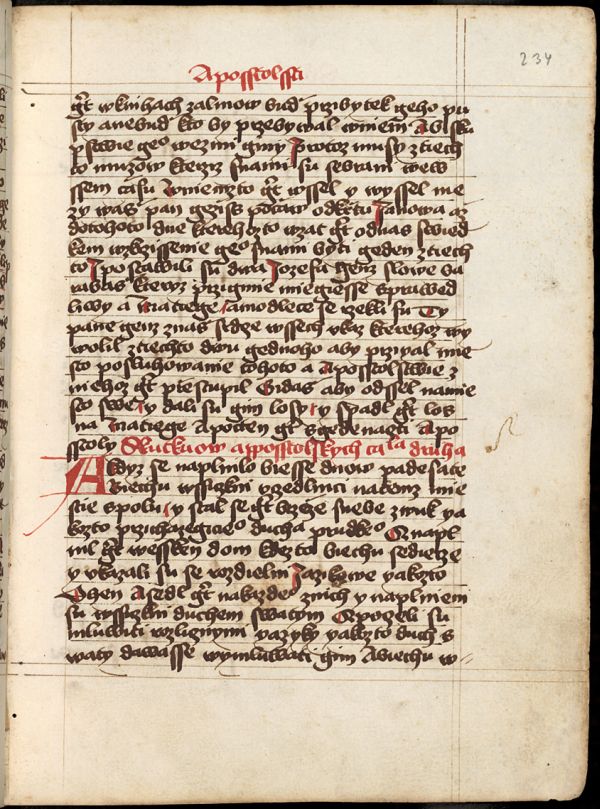 234
Aposstolsſti
gt̃ wknihach zalmow bud przibytek geho pu
sty anebud kto by przebywal wniem A bisku
pstwie geº wezmi giny Protoz musy z tiech
to muzow kterziz snami su sebrani wew
ssem casu wniemzto gt̃ wssel y wyssel me
zy was pan gezis poczaw odkrztu Janowa az
dotohoto dne kterehozto wzat gt̃ odnas swied
kem wzkrzissenie geº snami byti geden z tiech
to I postawili su dwa Jozefa genz slowe ba
rabas kteryz przigmie miegiesse sprawed
liwy a matiege a modlece se rzekli su Ty
pane genz znas srdce wssech ukaz kterehoz wy
wolil z tiechto dwu gednoho aby przigal mie
sto posluhowanie tohoto a Apostolstwie z
niehoz gt̃ prestupil Gidas aby odssel namie
sto swe y dali su gim losy y spadl gt̃ los
na matiege A pocten gt̃ sgedenaczti Apo
sstoly Skutkuow apposstolskych ca la druha
A kdyz se naplnilo biesse dnow padesate
Biechu wssiczkni ucedlnici natemz mie
stie spolu y stal se gt̃ brzcze snebe zwuk ya
kozto przichazegicieº ducha prudkeº Gnapl
nil gt̃ wessken dom kdezto biechu sedieze
y ukazali su se rozdielni Jazikowe yakozto
Ohen Asedl gt̃ nakazdeº znich y naplniem
su wssiczkni duchem swatym Gpoczeli su
mluwiti rozlicznymi yazyky yakozto duch s
waty dawasse wymluwati gim Abiechu w